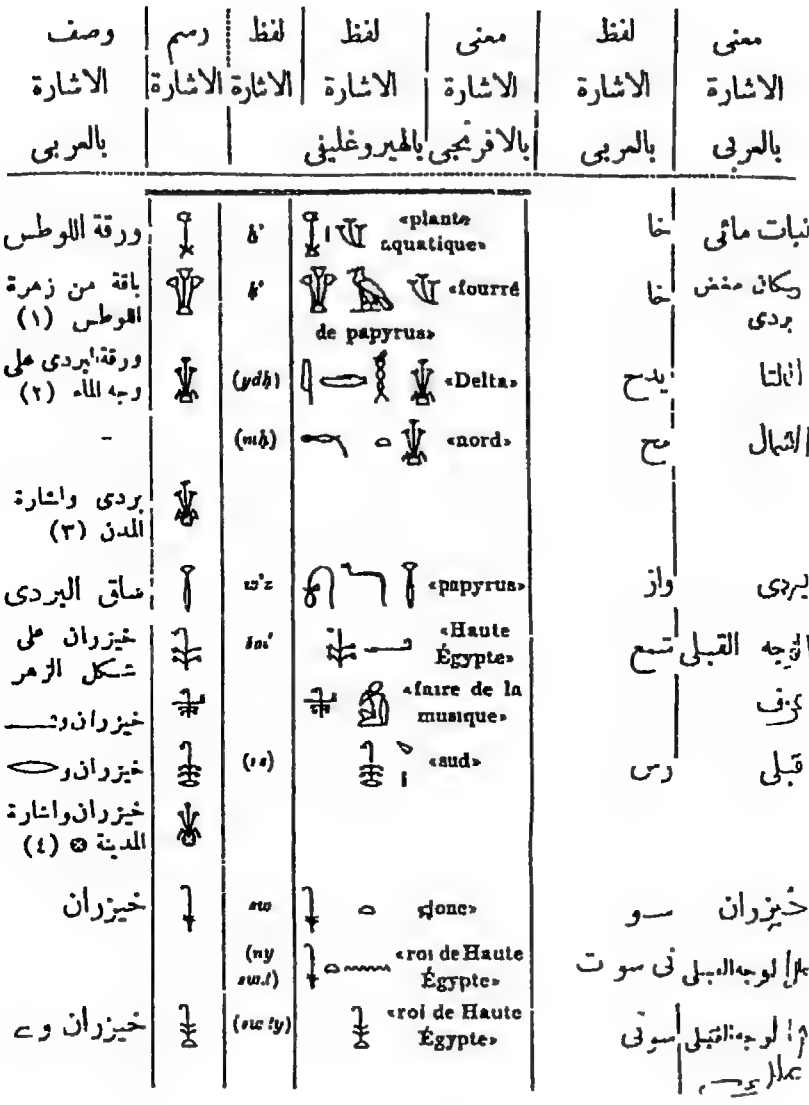 وصف الاشارة بالعربى | رسم الاشارة | لفظ الاشارة | لفظ الاشارة بالهيروغليفى | معنى الاشارة بالافرنجى | لفظ الاشارة بالعربى | معنى الاشارة بالعربى
ورقة اللوطس | ḫ' | «plante aquatique» | خا | نبات مائى
باقة من زهرة اللوطس (١) | ḫ' | «fourré de papyrus» | خا | بردى
ورقة البردى على وجه الماء (٢) | (ydḥ) | «Delta» | يدح | الدلتا
- | (mḥ) | «nord» | مح | الشمال
بردى واشارة المدن (٣)
ساق البردى | w'z | «papyrus» | واز | بردى
خيزران على شكل الزهر | šm' | «Haute Égypte» | شمع | الوجه القبلى
خيزران و | «faire de la musique» | عزف
خيزران و | (rs) | «sud» | رس | قبلى
خيزران واشارة المدينة ⊗ (٤)
خيزران | sw | «jonc» | سو | خيزران
(ny sw.t) | «roi de Haute Égypte» | نى سو ت | الوجه القبلى
خيزران و | (sw ty) | «roi de Haute Égypte» | سوتى | الوجه القبلى